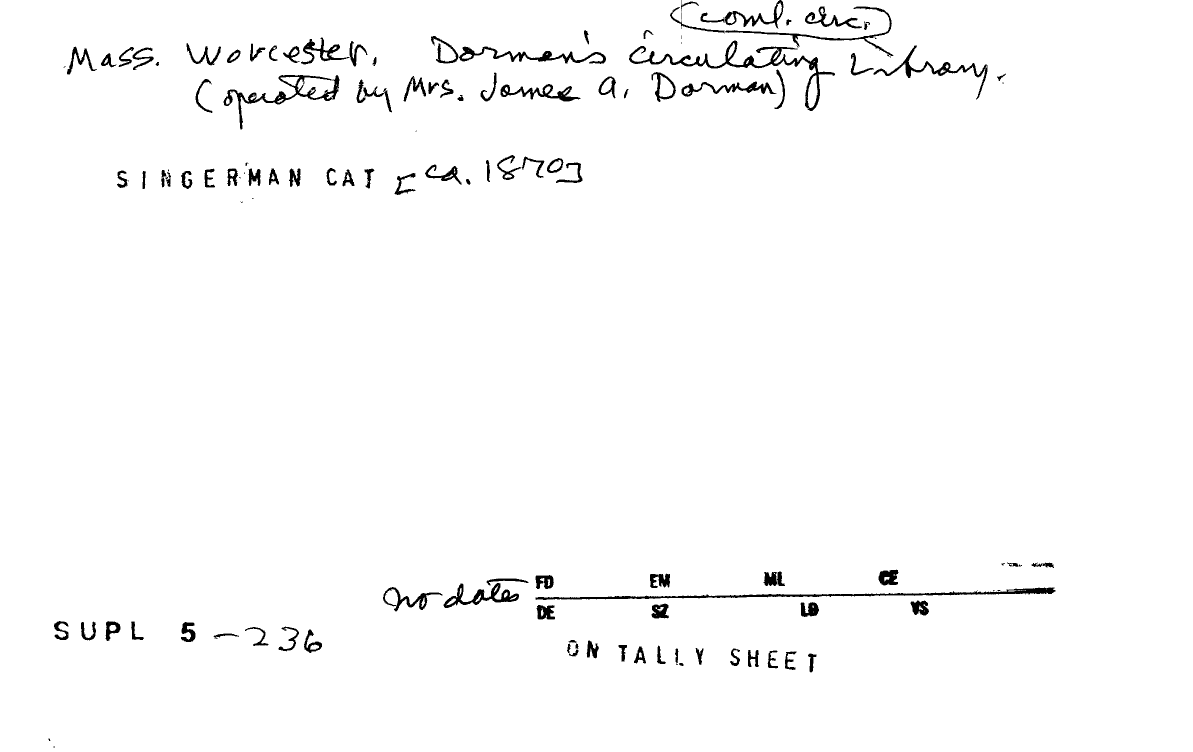 (coml. circ.)
Mass. Worcester. Dorman's circulating Library.
(operated by Mrs. James A. Dorman)
SINGERMAN CAT [ca. 1870]
no dates FD EM ML CE
DE SZ LD VS
SUPL 5 - 236
ON TALLY SHEET